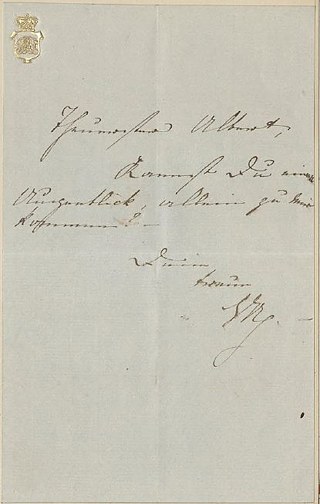 Theuerster Albert,
Kannst Du einen
Augenblick, allein zu mir
kommen? —
Deine
treue
VR.